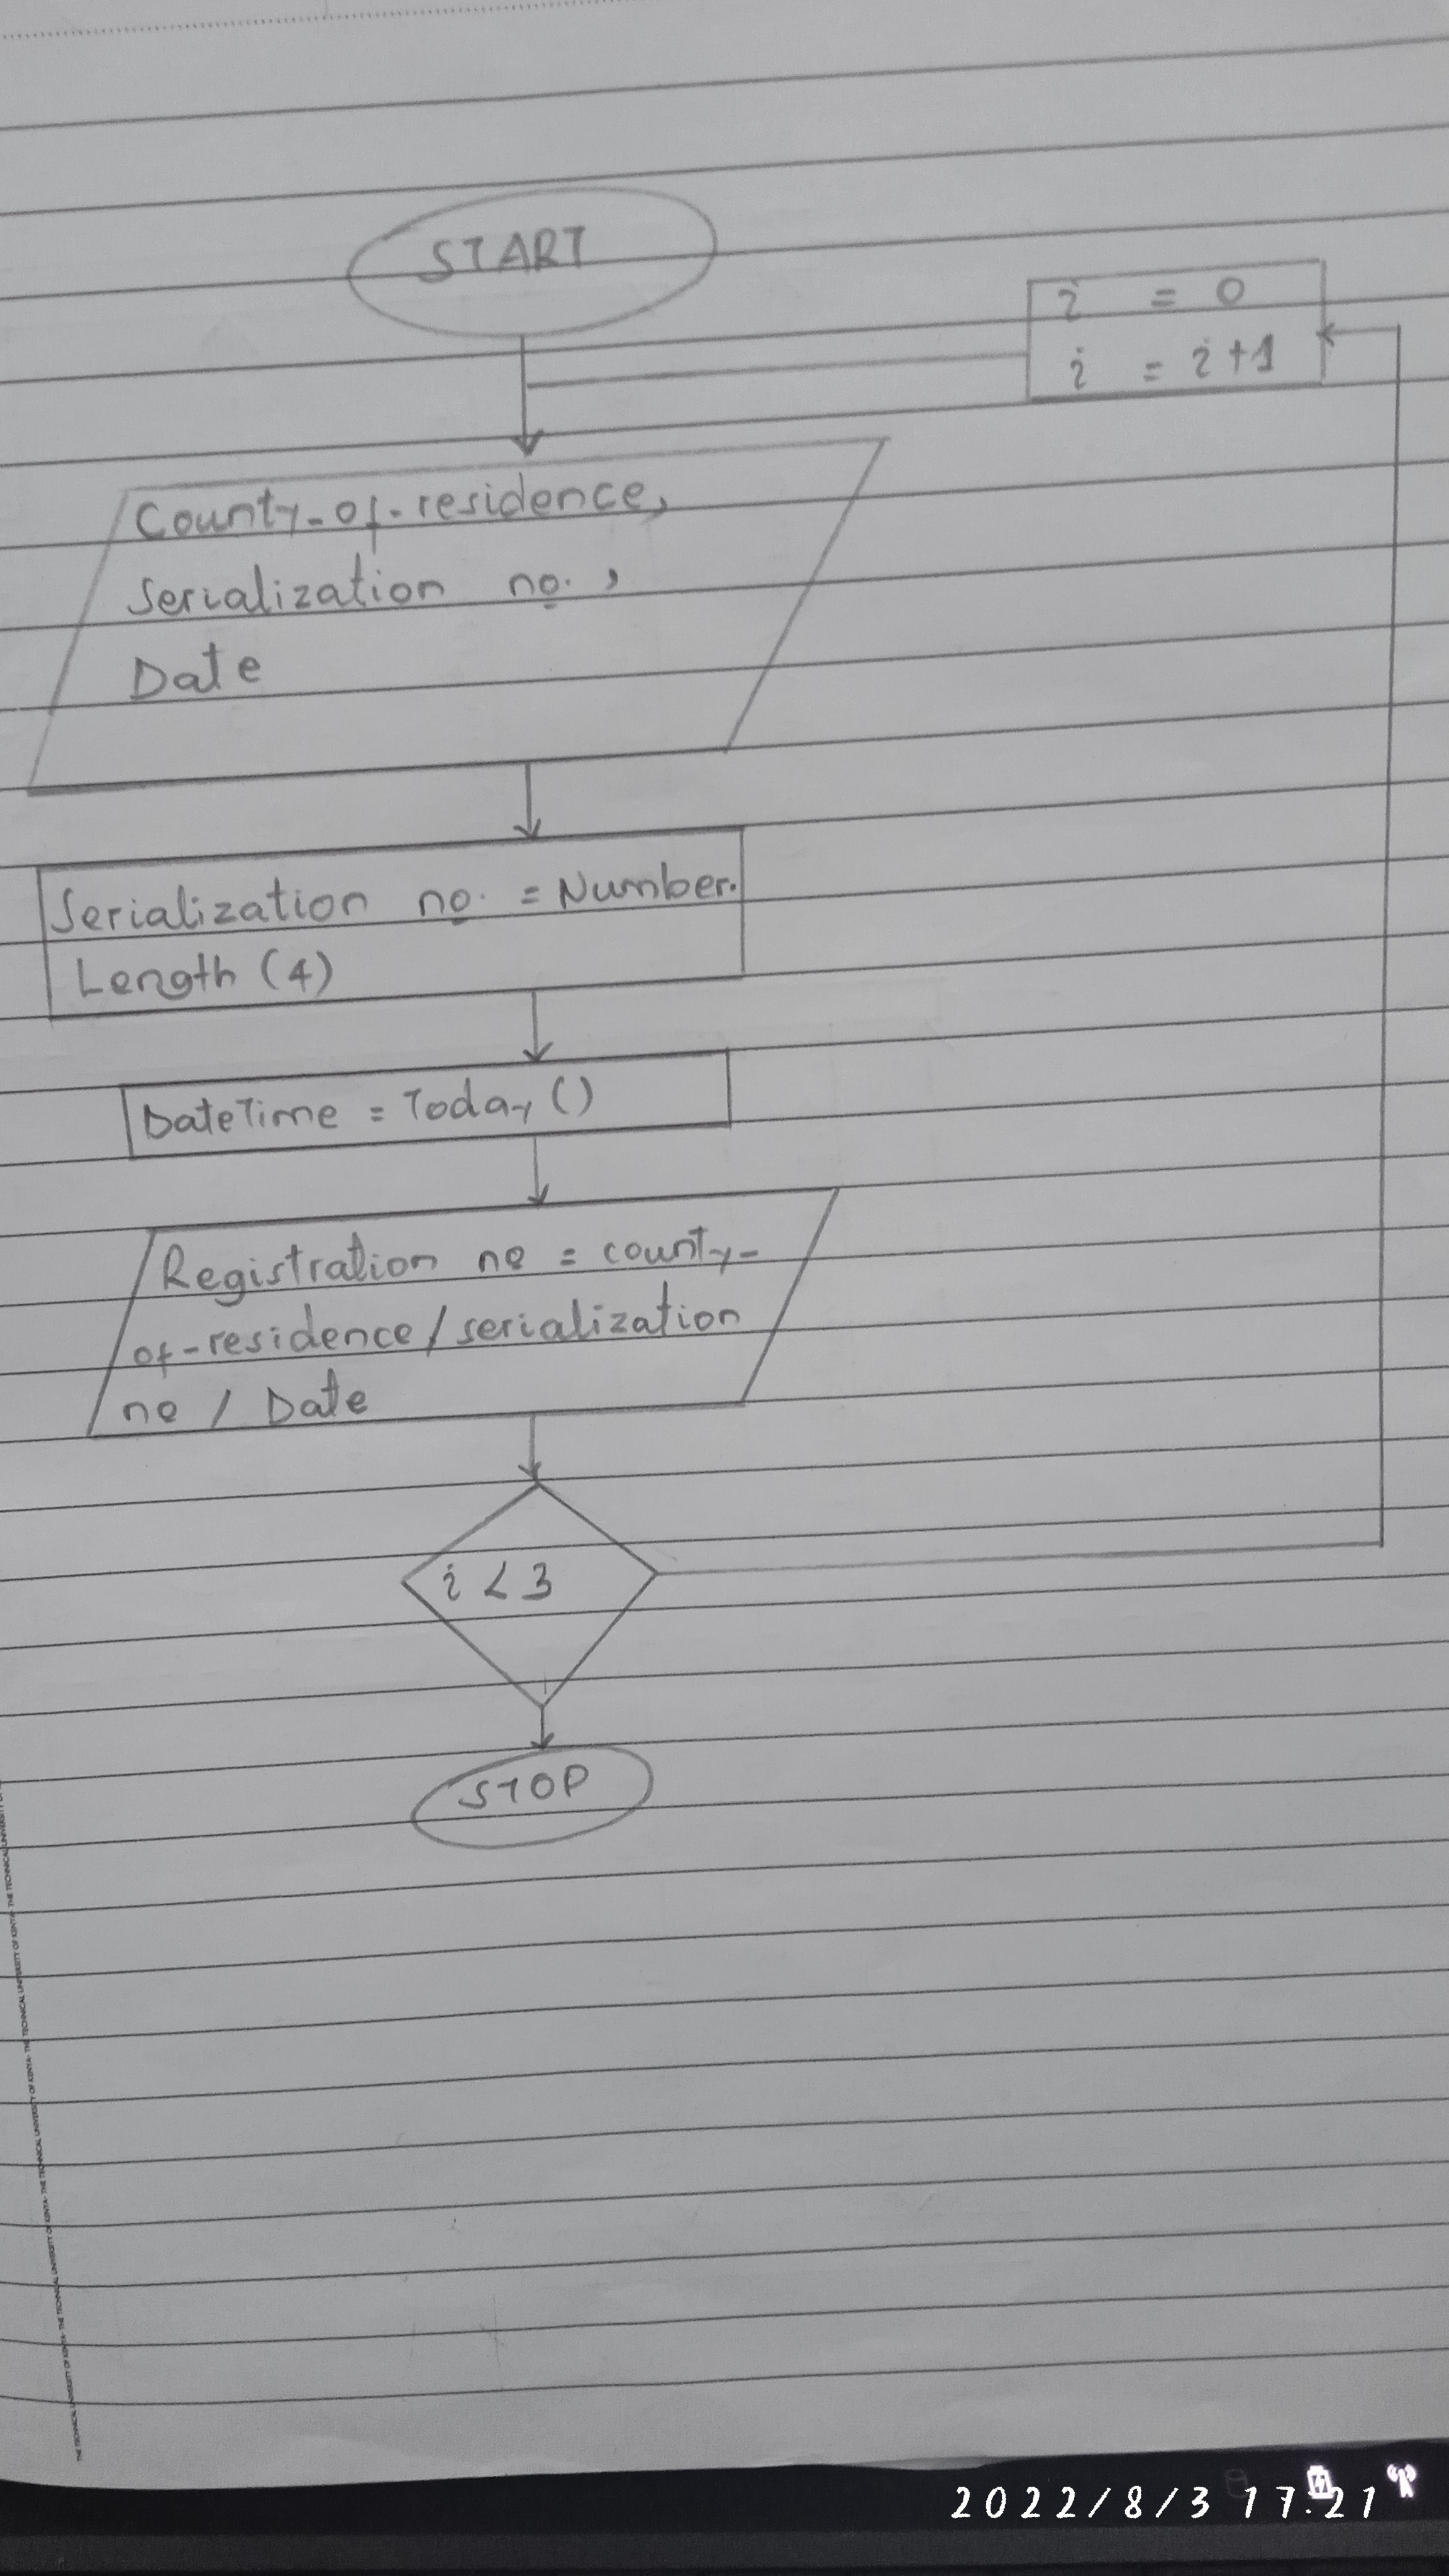 START
i = 0
i = i+1
County-of-residence,
Serialization no.,
Date
Serialization no. = Number.
Length (4)
DateTime = Today ()
Registration no = county-
of-residence/serialization
no / Date
i < 3
STOP
THE TECHNICAL UNIVERSITY OF KENYA- THE TECHNICAL UNIVERSITY OF KENYA- THE TECHNICAL UNIVERSITY OF KENYA- THE TECHNICAL UNIVERSITY OF KENYA- THE TECHNICAL UNIVERSITY
2022/8/3 17:21